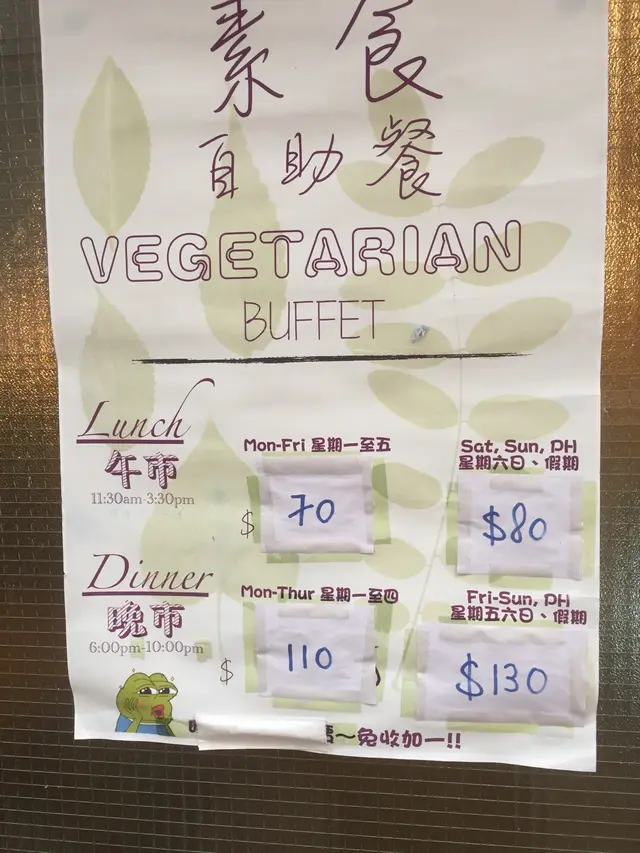 素食
自助餐
VEGETARIAN
BUFFET
Lunch
午市
11:30am-3:30pm
Mon-Fri 星期一至五
$ 70
Sat, Sun, PH
星期六日、假期
$80
Dinner
晚市
6:00pm-10:00pm
Mon-Thur 星期一至四
$ 110
Fri-Sun, PH
星期五六日、假期
$130
~免收加一!!